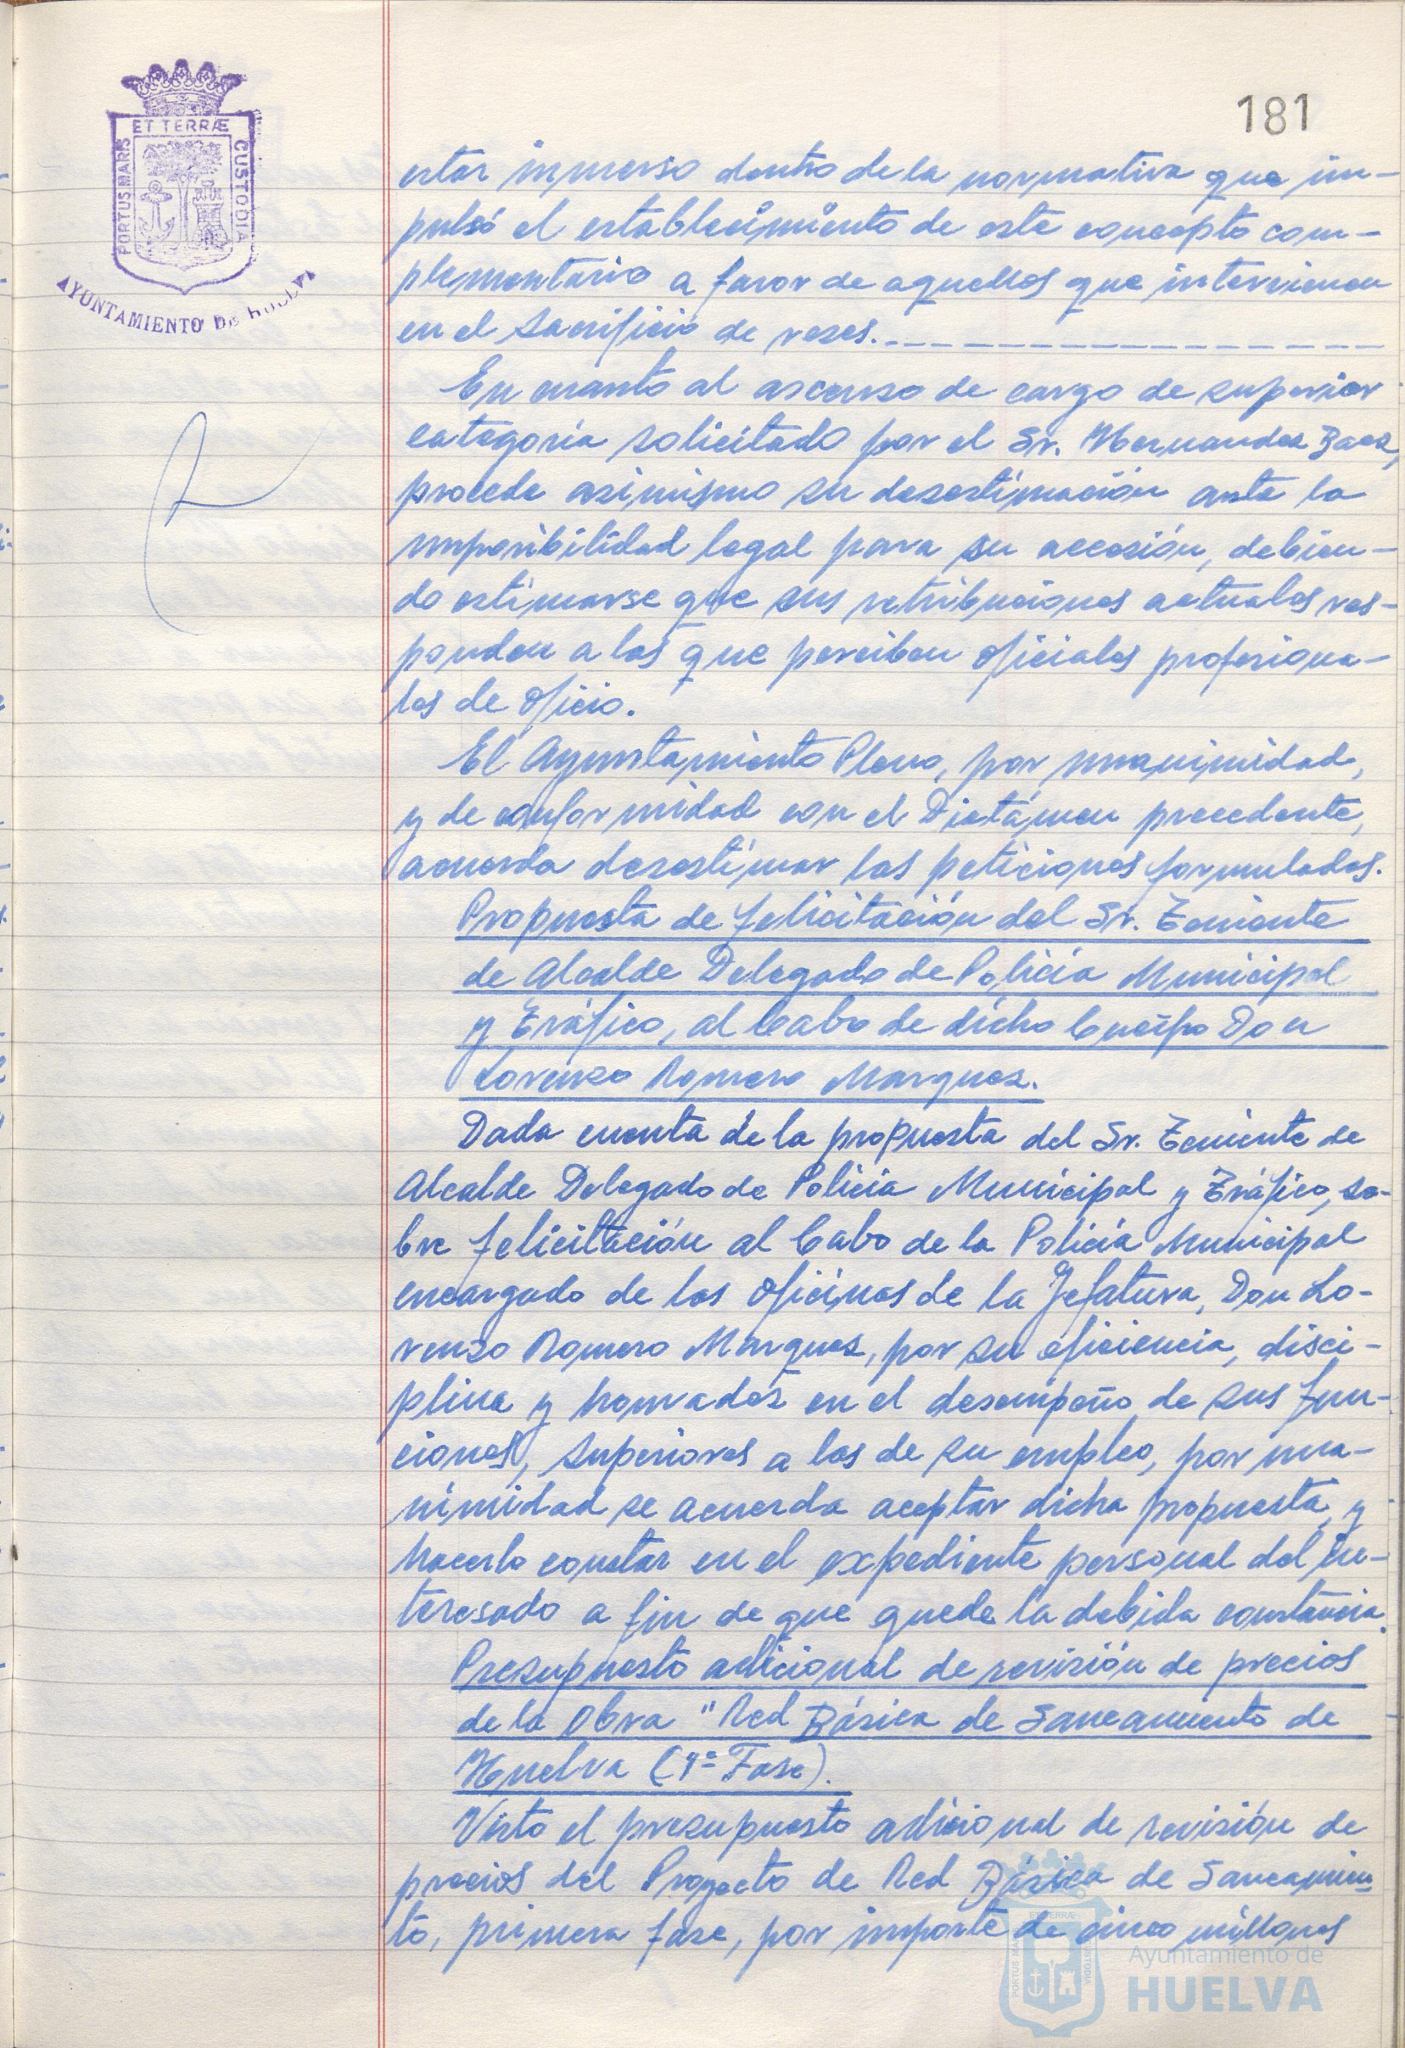 181
ET TERRÆ
PORTUS MARIS
CUSTODIA
AYUNTAMIENTO DE HUELVA
estar inmerso dentro de la normativa que im-
pulsó el establecimiento de este concepto com-
plementario a favor de aquellos que intervienen
en el sacrificio de reses.
En cuanto al ascenso de cargo de superior
categoria solicitado por el Sr. Hernandez Baez,
procede asimismo su desestimación ante la
imposibilidad legal para su accesión, debien-
do estimarse que sus retribuciones actuales res-
ponden a las que perciben oficiales profesiona-
les de oficio.
El Ayuntamiento Pleno, por unanimidad,
y de conformidad con el Dictámen precedente,
acuerda desestimar las peticiones formuladas.
Propuesta de felicitación del Sr. Teniente
de Alcalde Delegado de Policía Municipal
y Tráfico, al Cabo de dicho Cuerpo Don
Lorenzo Romero Marquez.
Dada cuenta de la propuesta del Sr. Teniente de
Alcalde Delegado de Policia Municipal y Tráfico, so-
bre felicitación al Cabo de la Policía Municipal
encargado de las oficinas de la Jefatura, Don Lo-
renzo Romero Marquez, por su eficiencia, disci-
plina y honradez en el desempeño de sus fun-
ciones, superiores a las de su empleo, por una-
nimidad se acuerda aceptar dicha propuesta y
hacerlo constar en el expediente personal del in-
teresado a fin de que quede la debida constancia.
Presupuesto adicional de revisión de precios
de la Obra "Red Básica de Saneamiento de
Huelva (1ª Fase).
Visto el presupuesto adicional de revisión de
precios del Proyecto de Red Básica de Saneamien-
to, primera fase, por importe de cinco millones
Ayuntamiento de
HUELVA